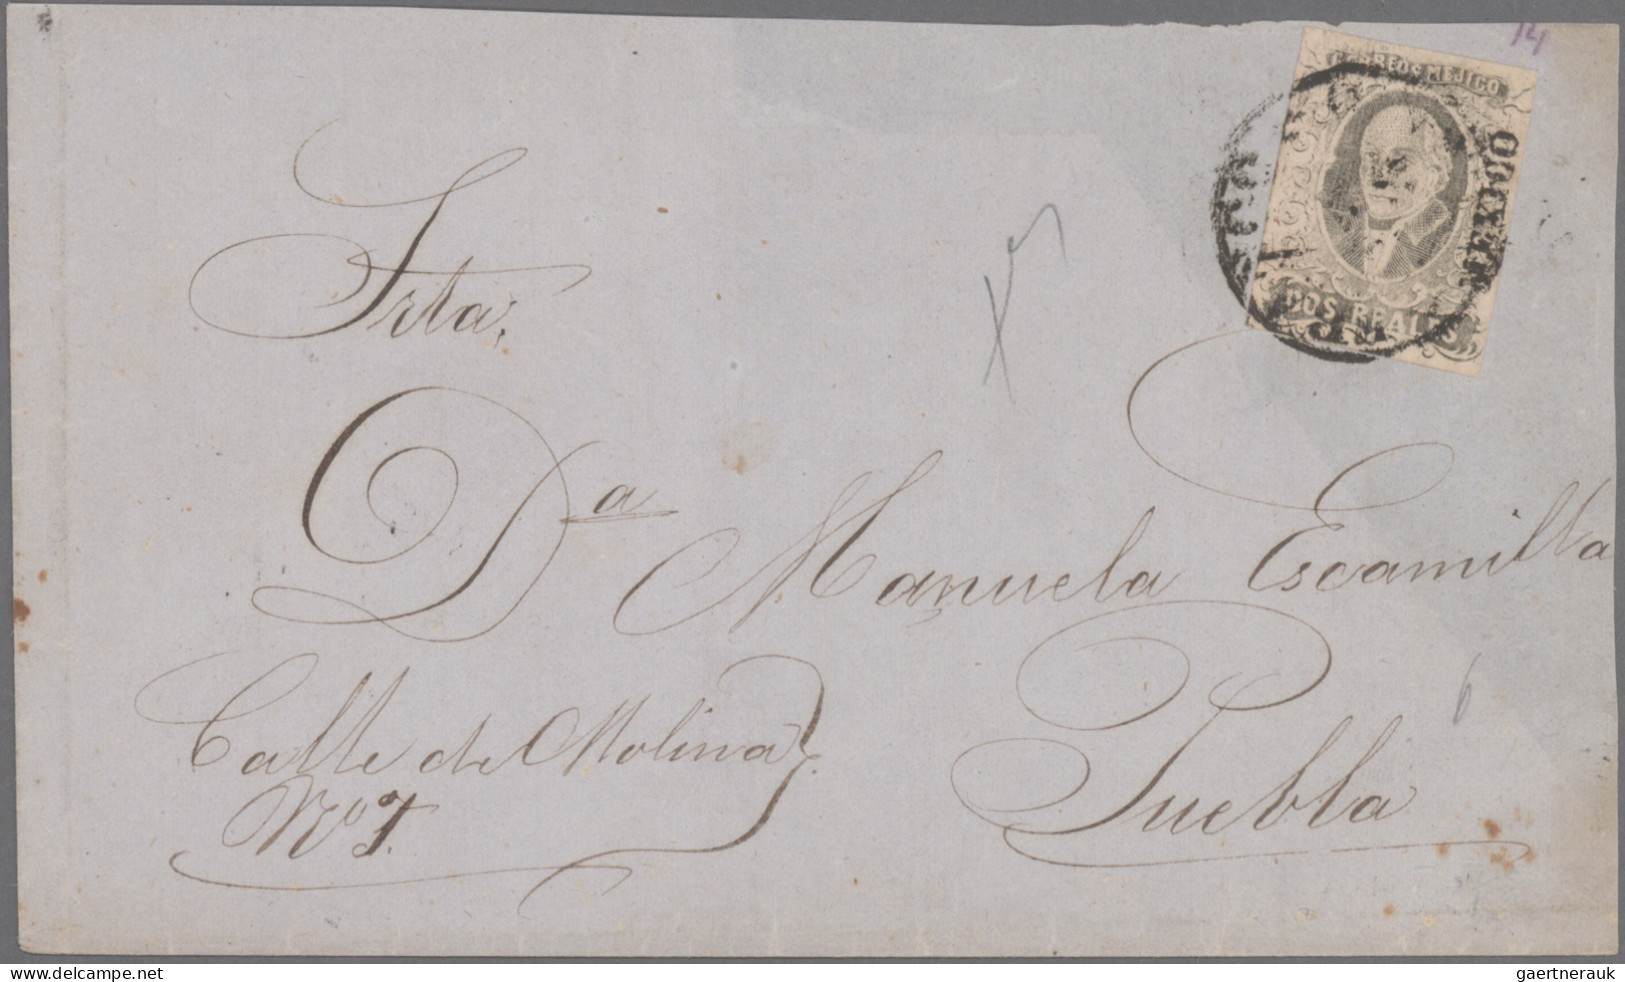 14
CORREOS MEJICO
MEXICO
DOS REALES
Srta.
Dª Manuela Escamilla
Calle de Molina
Nº 7.
Puebla
6
delcampe.net
gaertnerauk